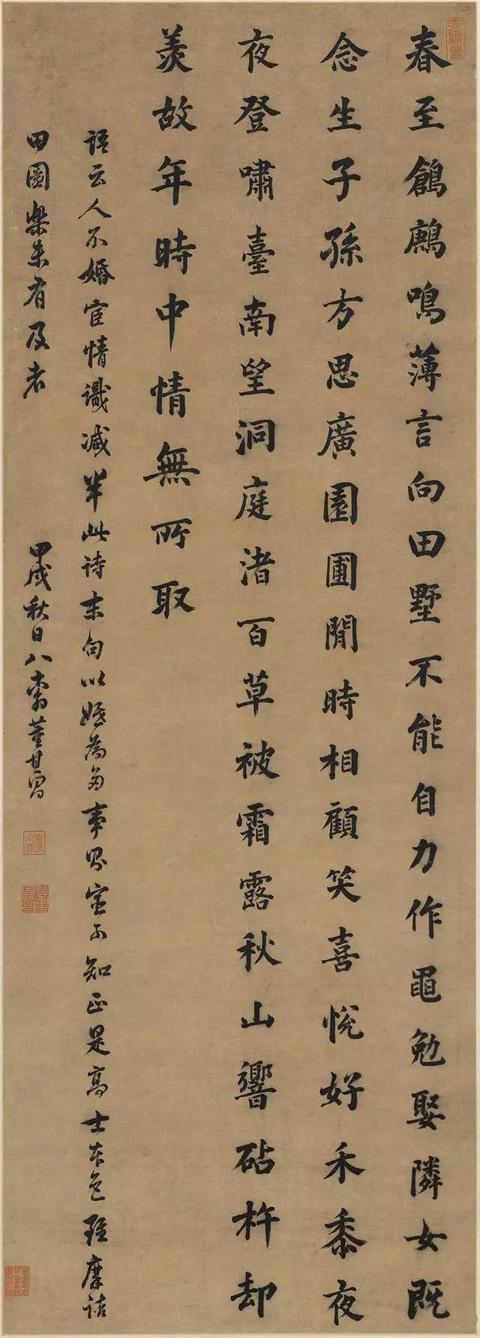 春至鶬鶊鳴薄言向田墅不能自力作黽勉娶隣女既
念生子孫方思廣園圃閒時相顧笑喜悅好禾黍夜
夜登嘯臺南望洞庭渚百草被霜露秋山響砧杵却
羨故年時中情無所取
語云人不婚宦情識減半此詩末句以婚為多事不知正是高士本色雖摩詰
田園樂未有及者 甲戌秋日八翁董其昌